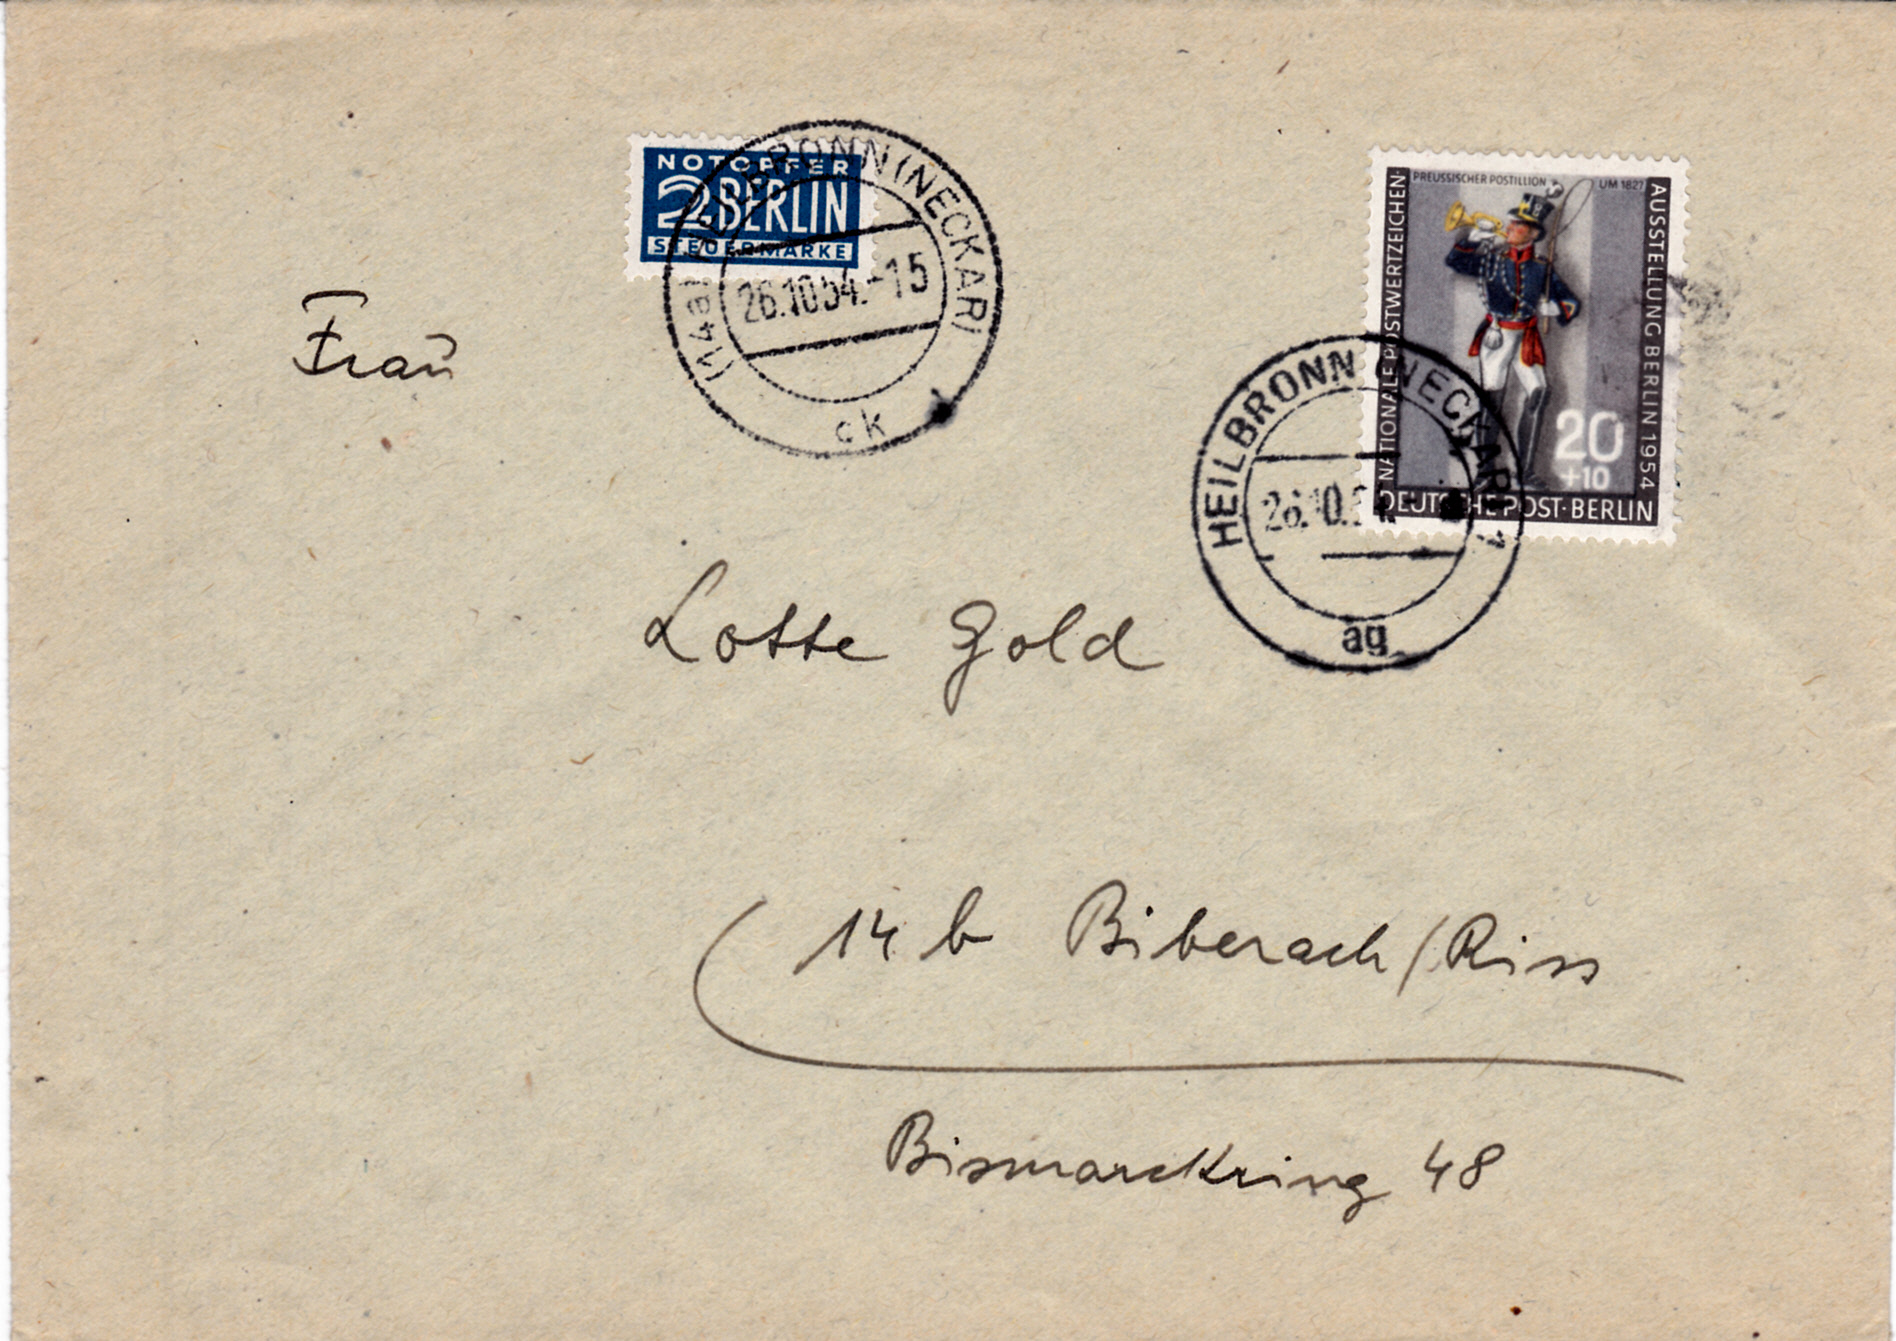 NOTOPFER
2 BERLIN
STEUERMARKE
(14a) HEILBRONN (NECKAR) 1
26.10.54.-15
ck
PREUSSISCHER POSTILLION UM 1827
NATIONALE POSTWERTZEICHEN-
AUSSTELLUNG BERLIN 1954
20
+10
DEUTSCHE POST·BERLIN
HEILBRONN (NECKAR) 1
26.10.
ag
Frau
Lotte Gold
14b Biberach/Riss
Bismarckring 48